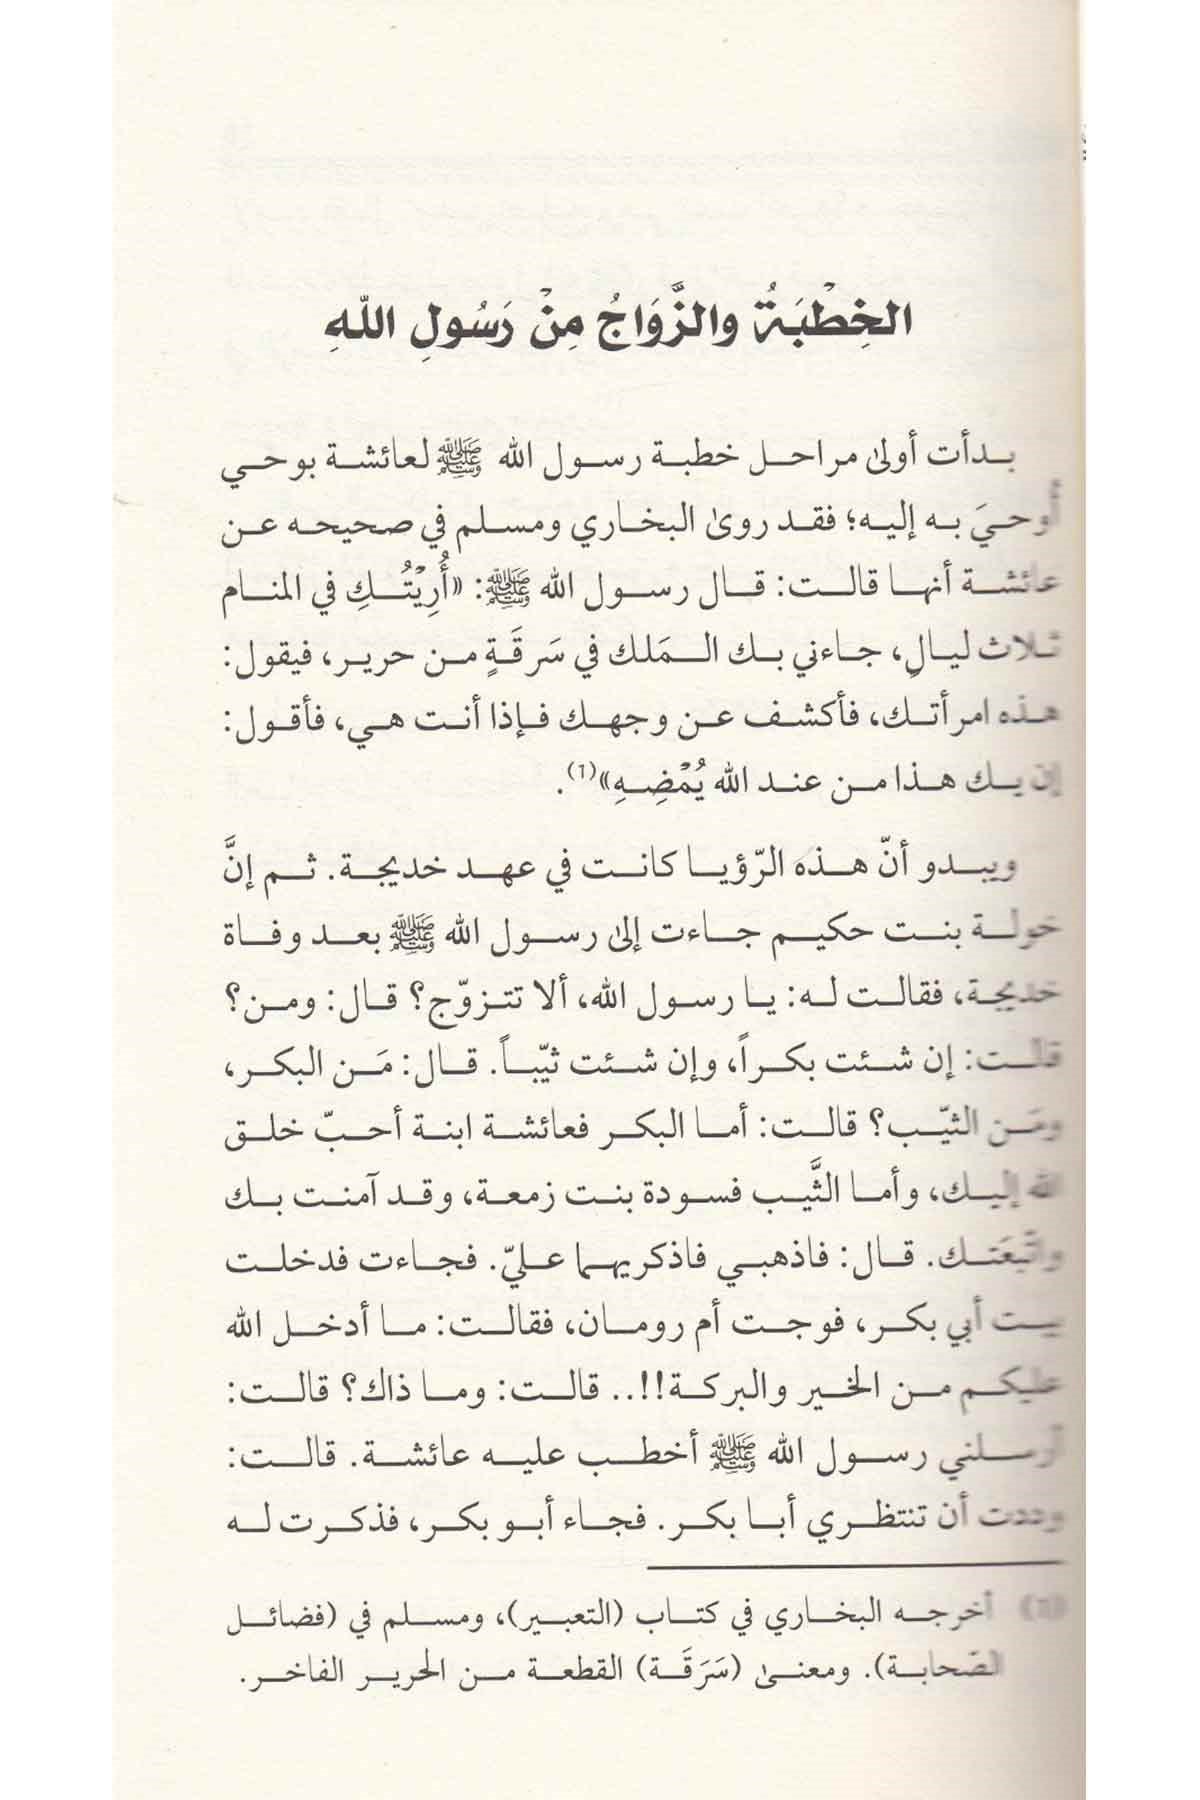 الخِطْبَةُ والزَّوَاجُ مِنْ رَسُولِ اللهِ
بدأت أولىٰ مراحل خطبة رسول الله ﷺ لعائشة بوحي
أوحيَ به إليه؛ فقد روىٰ البخاري ومسلم في صحيحه عن
عائشة أنها قالت: قال رسول الله ﷺ: «أُرِيْتُكِ في المنام
ثلاث ليالٍ، جاءني بك المَلك في سَرقَةٍ من حرير، فيقول:
هذه امرأتك، فأكشف عن وجهك فإذا أنت هي، فأقول:
إن يك هذا من عند الله يُمْضِهِ»(١).
ويبدو أنّ هذه الرّؤيا كانت في عهد خديجة. ثم إنَّ
خولة بنت حكيم جاءت إلىٰ رسول الله ﷺ بعد وفاة
خديجة، فقالت له: يا رسول الله، ألا تتزوّج؟ قال: ومن؟
قالت: إن شئت بكراً، وإن شئت ثيّباً. قال: مَن البكر،
ومَن الثيّب؟ قالت: أما البكر فعائشة ابنة أحبّ خلق
الله إليك، وأما الثَّيب فسودة بنت زمعة، وقد آمنت بك
واتّبعَتك. قال: فاذهبي فاذكريهما عليّ. فجاءت فدخلت
بيت أبي بكر، فوجت أم رومان، فقالت: ما أدخل الله
عليكم من الخير والبركة!!.. قالت: وما ذاك؟ قالت:
أرسلني رسول الله ﷺ أخطب عليه عائشة. قالت:
وددت أن تنتظري أبا بكر. فجاء أبو بكر، فذكرت له
(١) أخرجه البخاري في كتاب (التعبير)، ومسلم في (فضائل
الصّحابة). ومعنىٰ (سَرَقَة) القطعة من الحرير الفاخر.